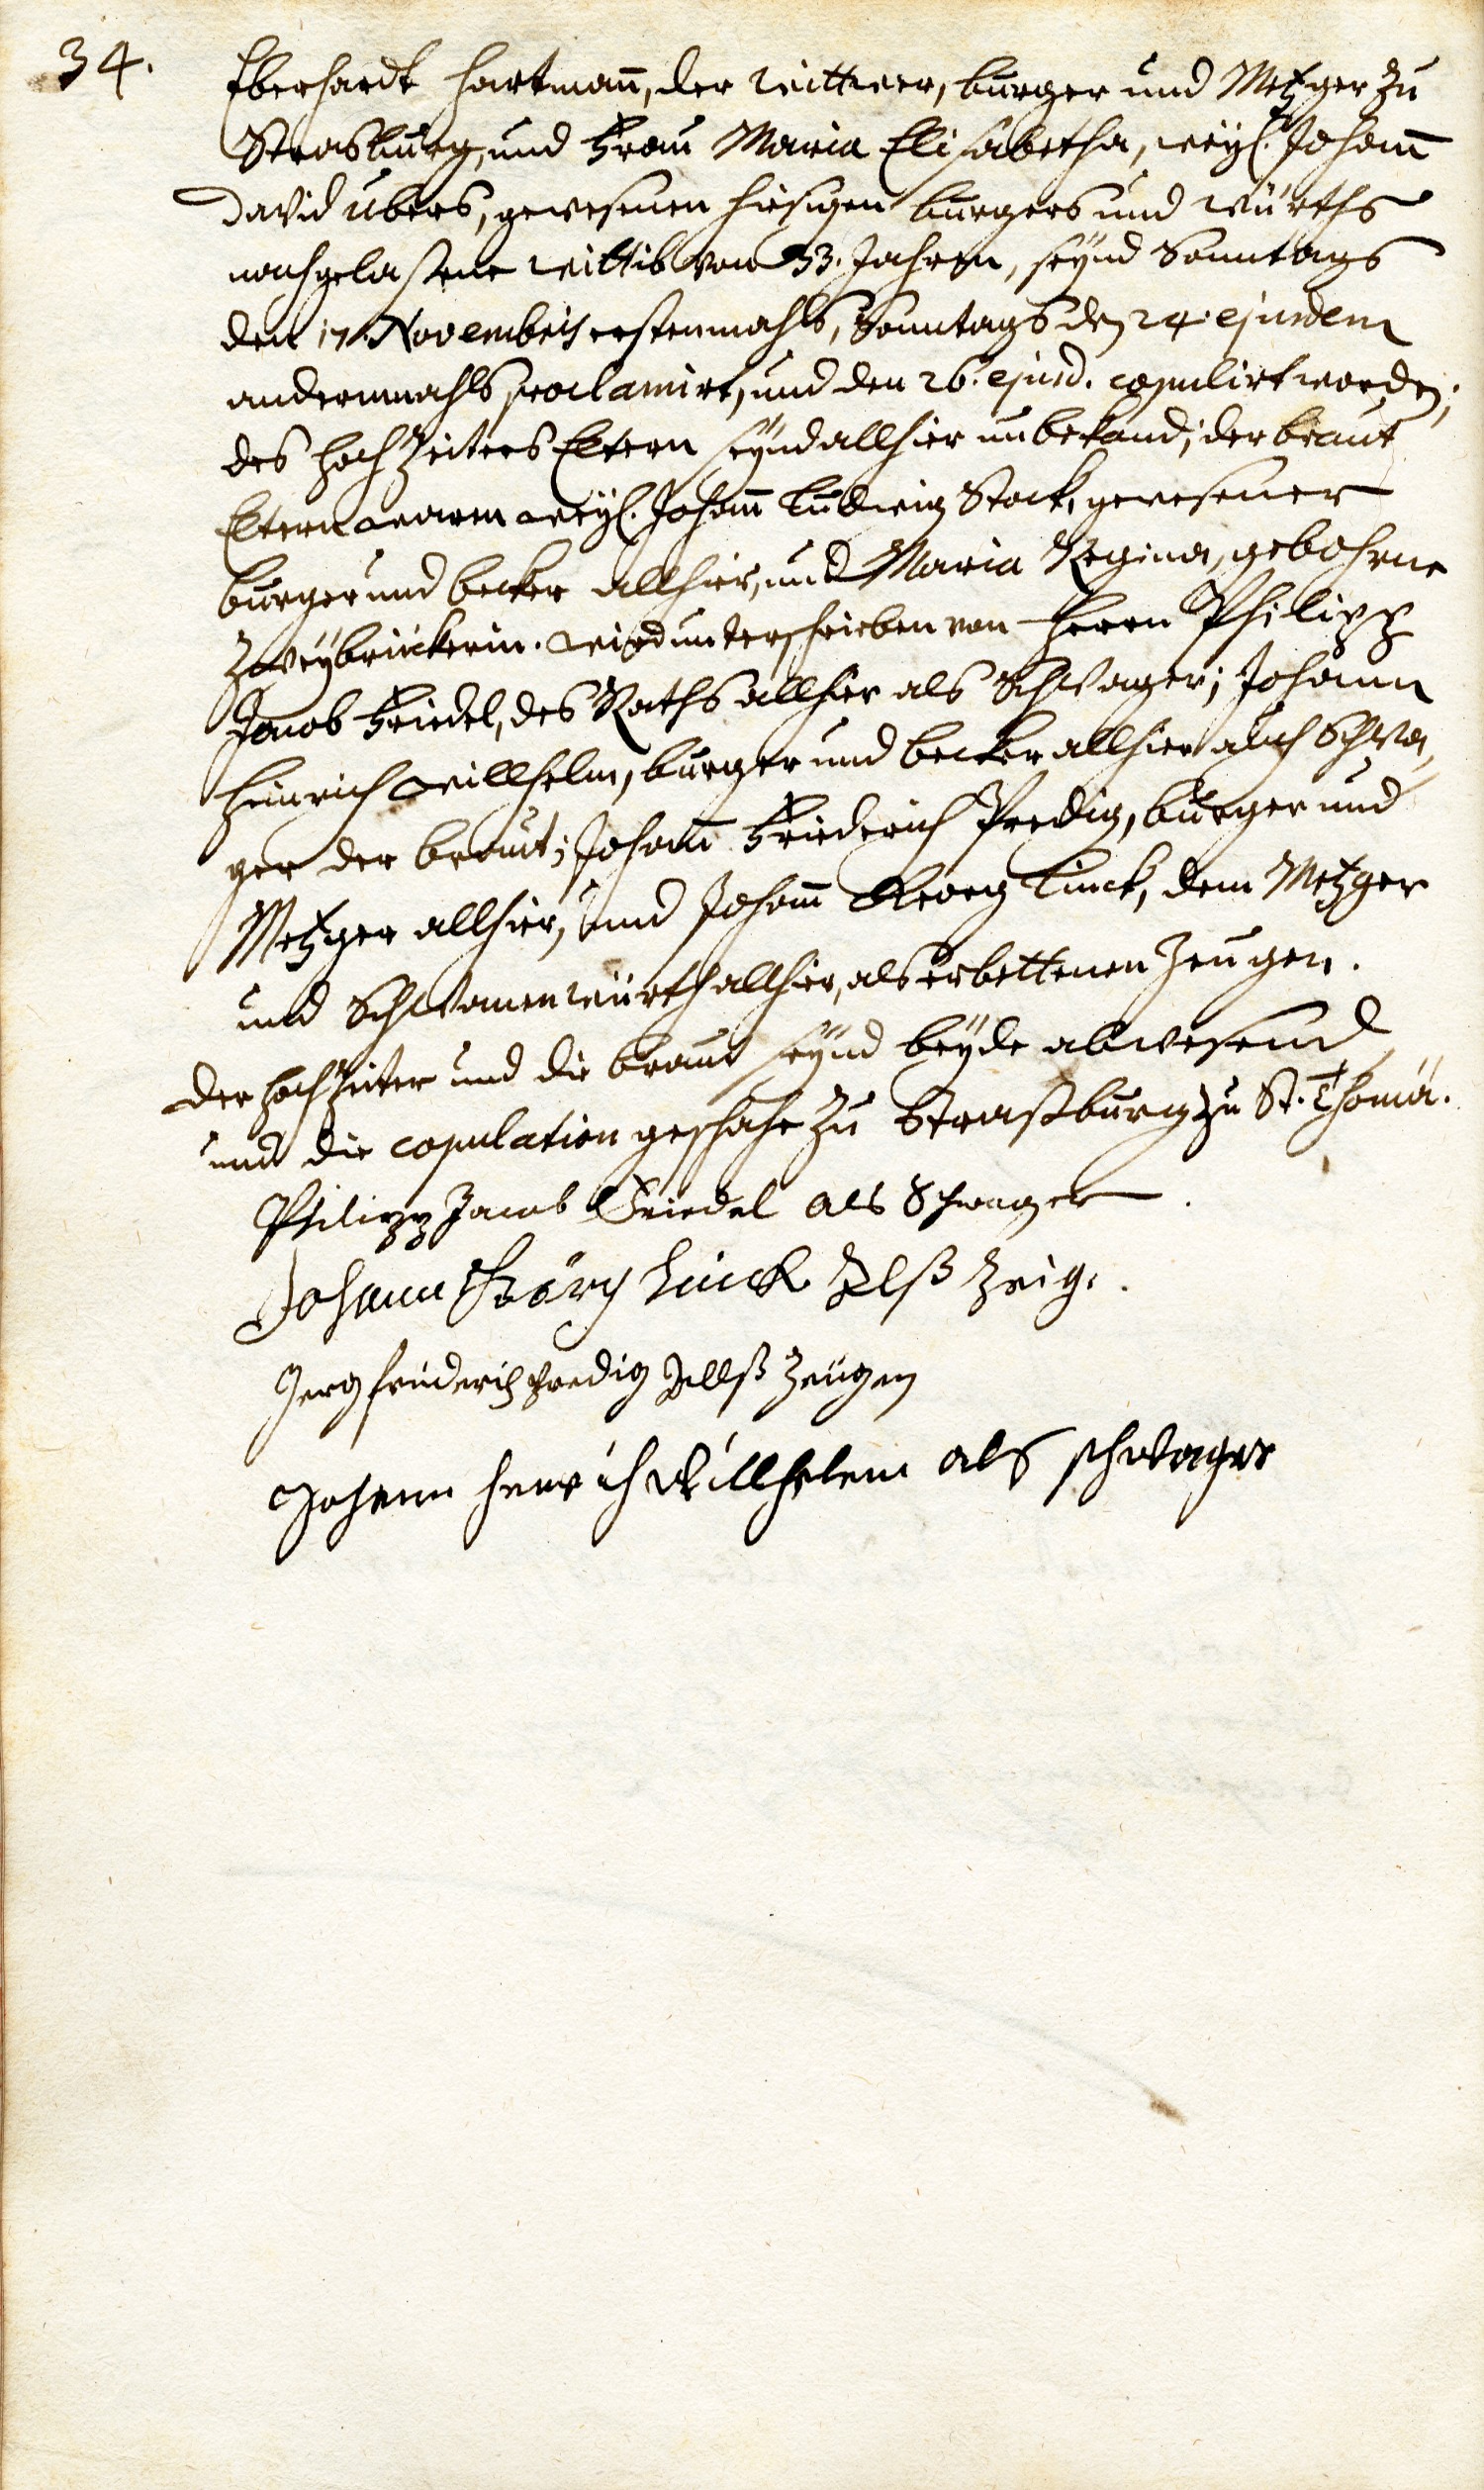 34.
Eberhardt Hartmañ, der Wittwer, burger und Metzger zu
Strasburg, und Frau Maria Elisabetha, weyl. Johañ
David Ubers, gewesenen hiesigen burgers und würths
nachgelaßene Wittib von 33. Jahren, seÿnd Sonntags
den 17. Novembris erstenmahls, Sonntags den 24. ejusdem
andermahls proclamirt, und den 26. ejusd. copulirt worden;
des Hochzeiters Eltern seÿnd allhier unbekand; der braut
Eltern waren weyl. Johañ Ludwig Stock, gewesener
burger und becker allhier, und Maria Regina, gebohrne
Zweÿbrückerin. Wird unterschrieben von Herrn Philipp
Jacob Friedel, des Raths allhier als Schwager; Johann
Heinrich Willhelm, burger und becker allhier auch Schwa,
ger der braut; Johañ Friederich Predig, burger und
Metzger allhier, und Johañ Georg Linck, dem Metzger
und Schwanenwürth allhier, als erbettenen Zeugen.
der Hochzeiter und die braut seÿnd beÿde abwesend
und die copulation geschahe zu Straßburg zu St. Thomä.
Philipp Jacob Friedel als Schwager.
Johann Geörg Linck Alß Zeig.
Jerg friderich Predig Allß Zeugen
Johann Henrich Willhelem als schwager